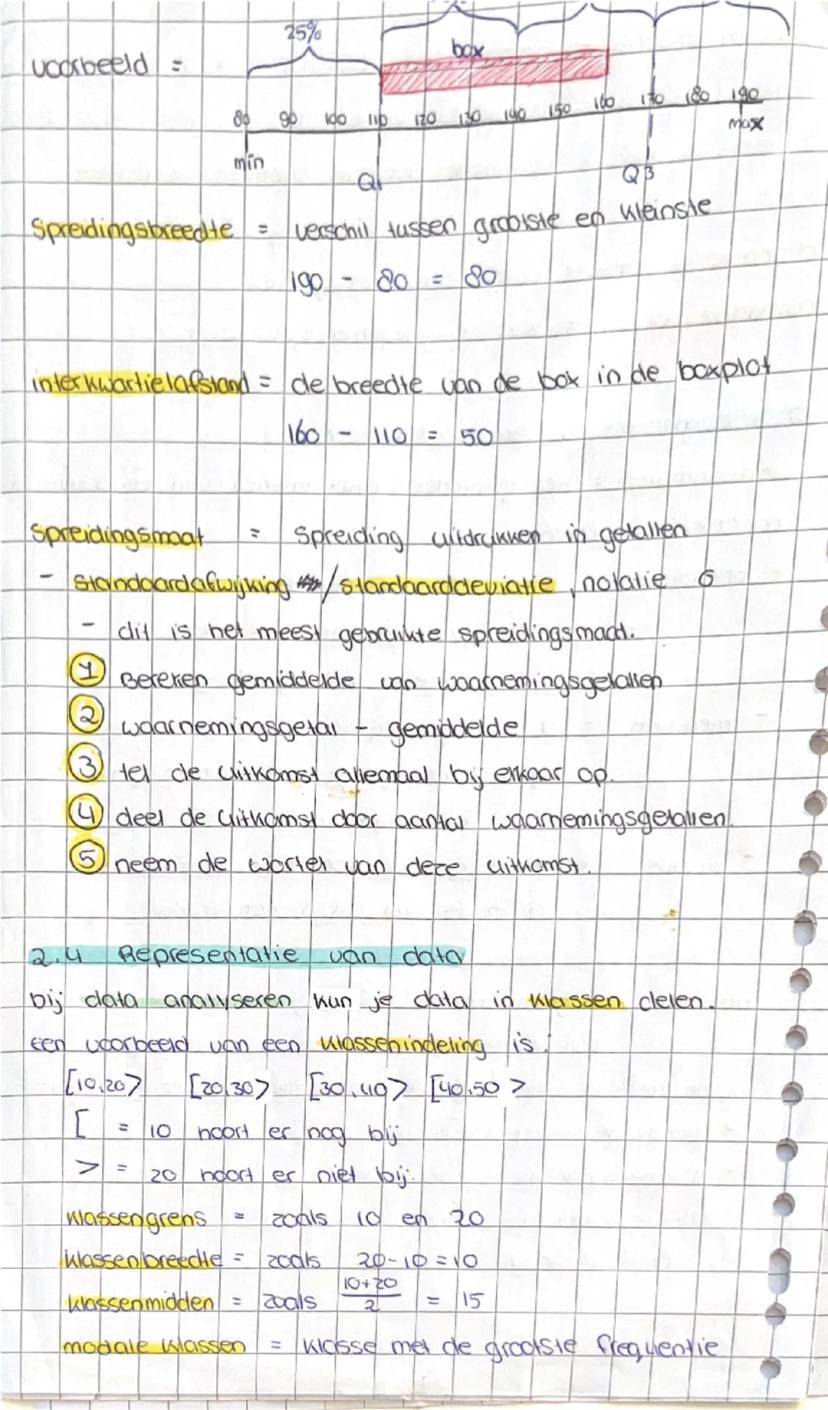 25%
voorbeeld =
box
80 90 100 110 120 130 140 150 160 170 180 190
min
max
Q1
Q3
Spreidingsbreedte = verschil tussen grootste en kleinste
190 - 80 = 80
interkwartielafstand = de breedte van de box in de boxplot
160 - 110 = 50
Spreidingsmaat = Spreiding uitdrukken in getallen
- Standaardafwijking /standaarddeviatie, notatie σ
- dit is het meest gebruikte spreidingsmaat.
1 Bereken gemiddelde van waarnemingsgetallen
2 waarnemingsgetal - gemiddelde
3 tel de uitkomst allemaal bij elkaar op.
4 deel de uitkomst door aantal waarnemingsgetallen.
5 neem de wortel van deze uitkomst.
2.4 Representatie van data
bij data analyseren kun je data in klassen delen.
Een voorbeeld van een klassenindeling is:
[10,20> [20,30> [30,40> [40,50 >
[ = 10 hoort er nog bij
> = 20 hoort er niet bij.
klassengrens = zoals 10 en 20
klassenbreedte = zoals 20-10 = 10
klassenmidden = zoals 10+20/2 = 15
modale klassen = klasse met de grootste frequentie